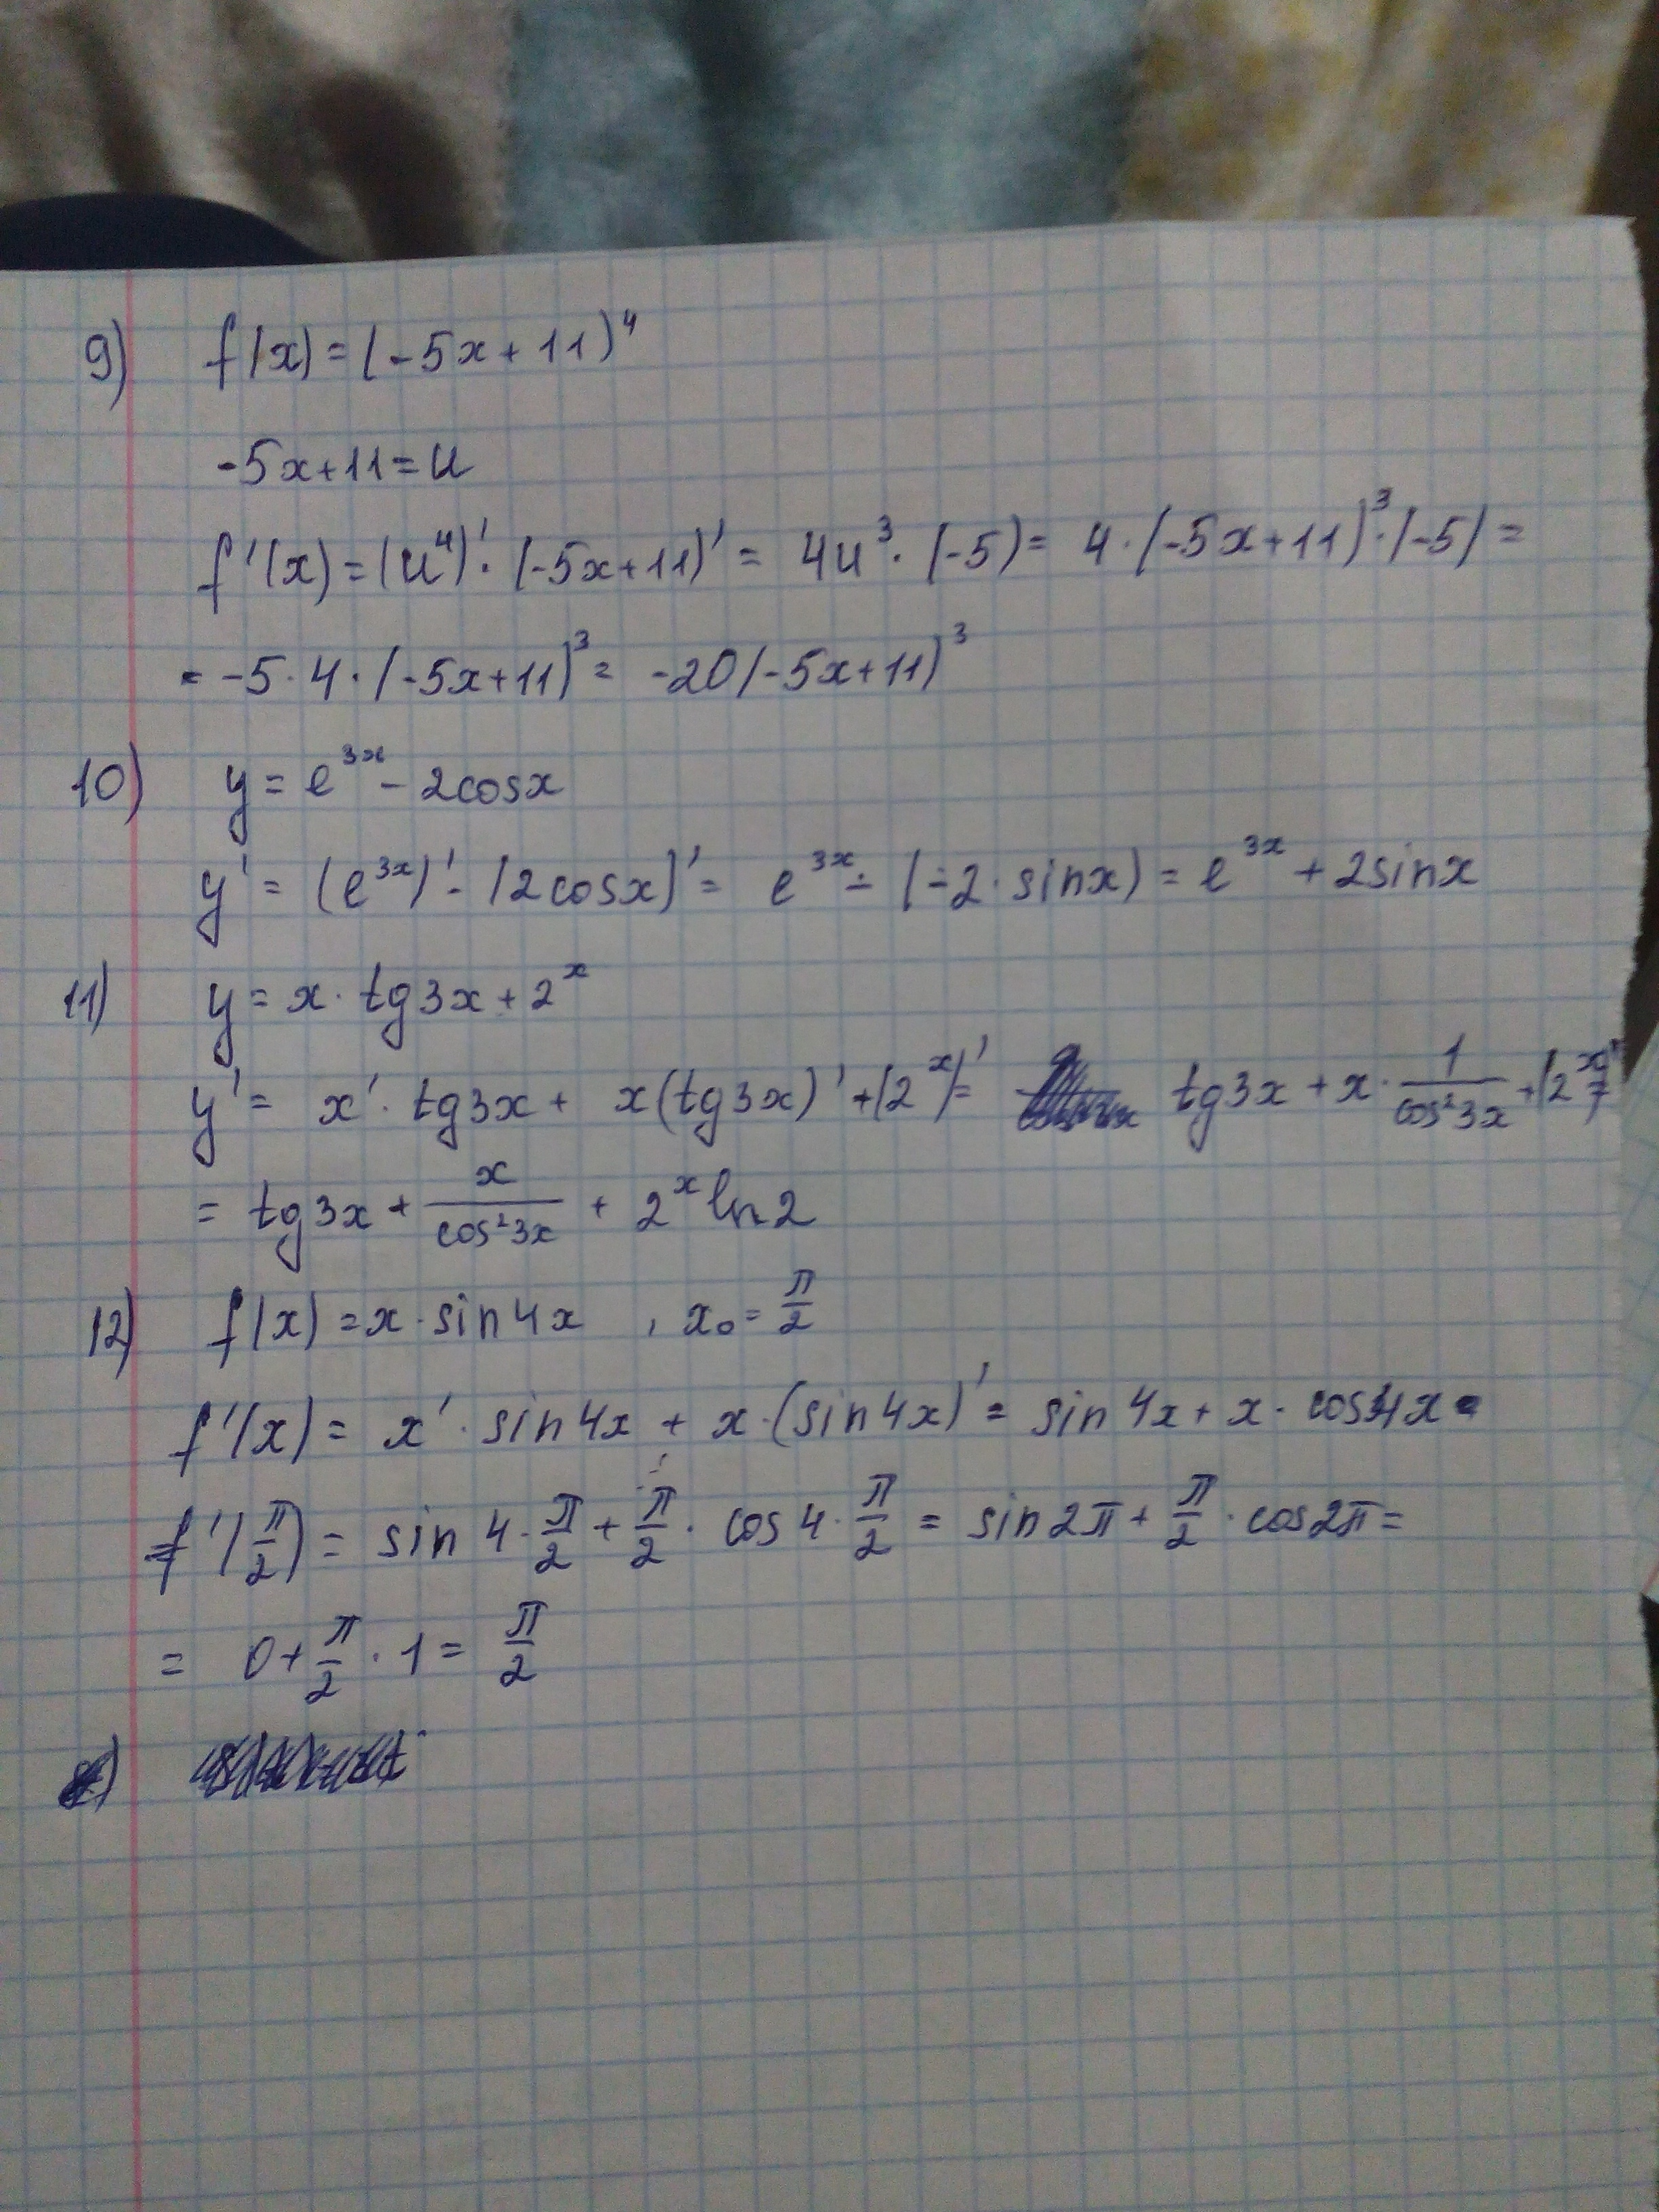 9) f(x) = (-5x+11)⁴
-5x+11=u
f'(x) = (u⁴)' · (-5x+11)' = 4u³ · (-5) = 4 · (-5x+11)³ · (-5) =
= -5 · 4 · (-5x+11)³ = -20(-5x+11)³
10) y = e³ˣ - 2cosx
y' = (e³ˣ)' - (2cosx)' = e³ˣ - (-2 · sinx) = e³ˣ + 2sinx
11) y = x · tg3x + 2ˣ
y' = x' · tg3x + x(tg3x)' + (2ˣ)' = tg3x + x · 1/cos²3x + (2ˣ)' =
= tg3x + x/cos²3x + 2ˣ ln2
12) f(x) = x · sin4x , x₀ = π/2
f'(x) = x' · sin4x + x · (sin4x)' = sin4x + x · cos4x
f'(π/2) = sin 4 · π/2 + π/2 · cos 4 · π/2 = sin2π + π/2 · cos2π =
= 0 + π/2 · 1 = π/2